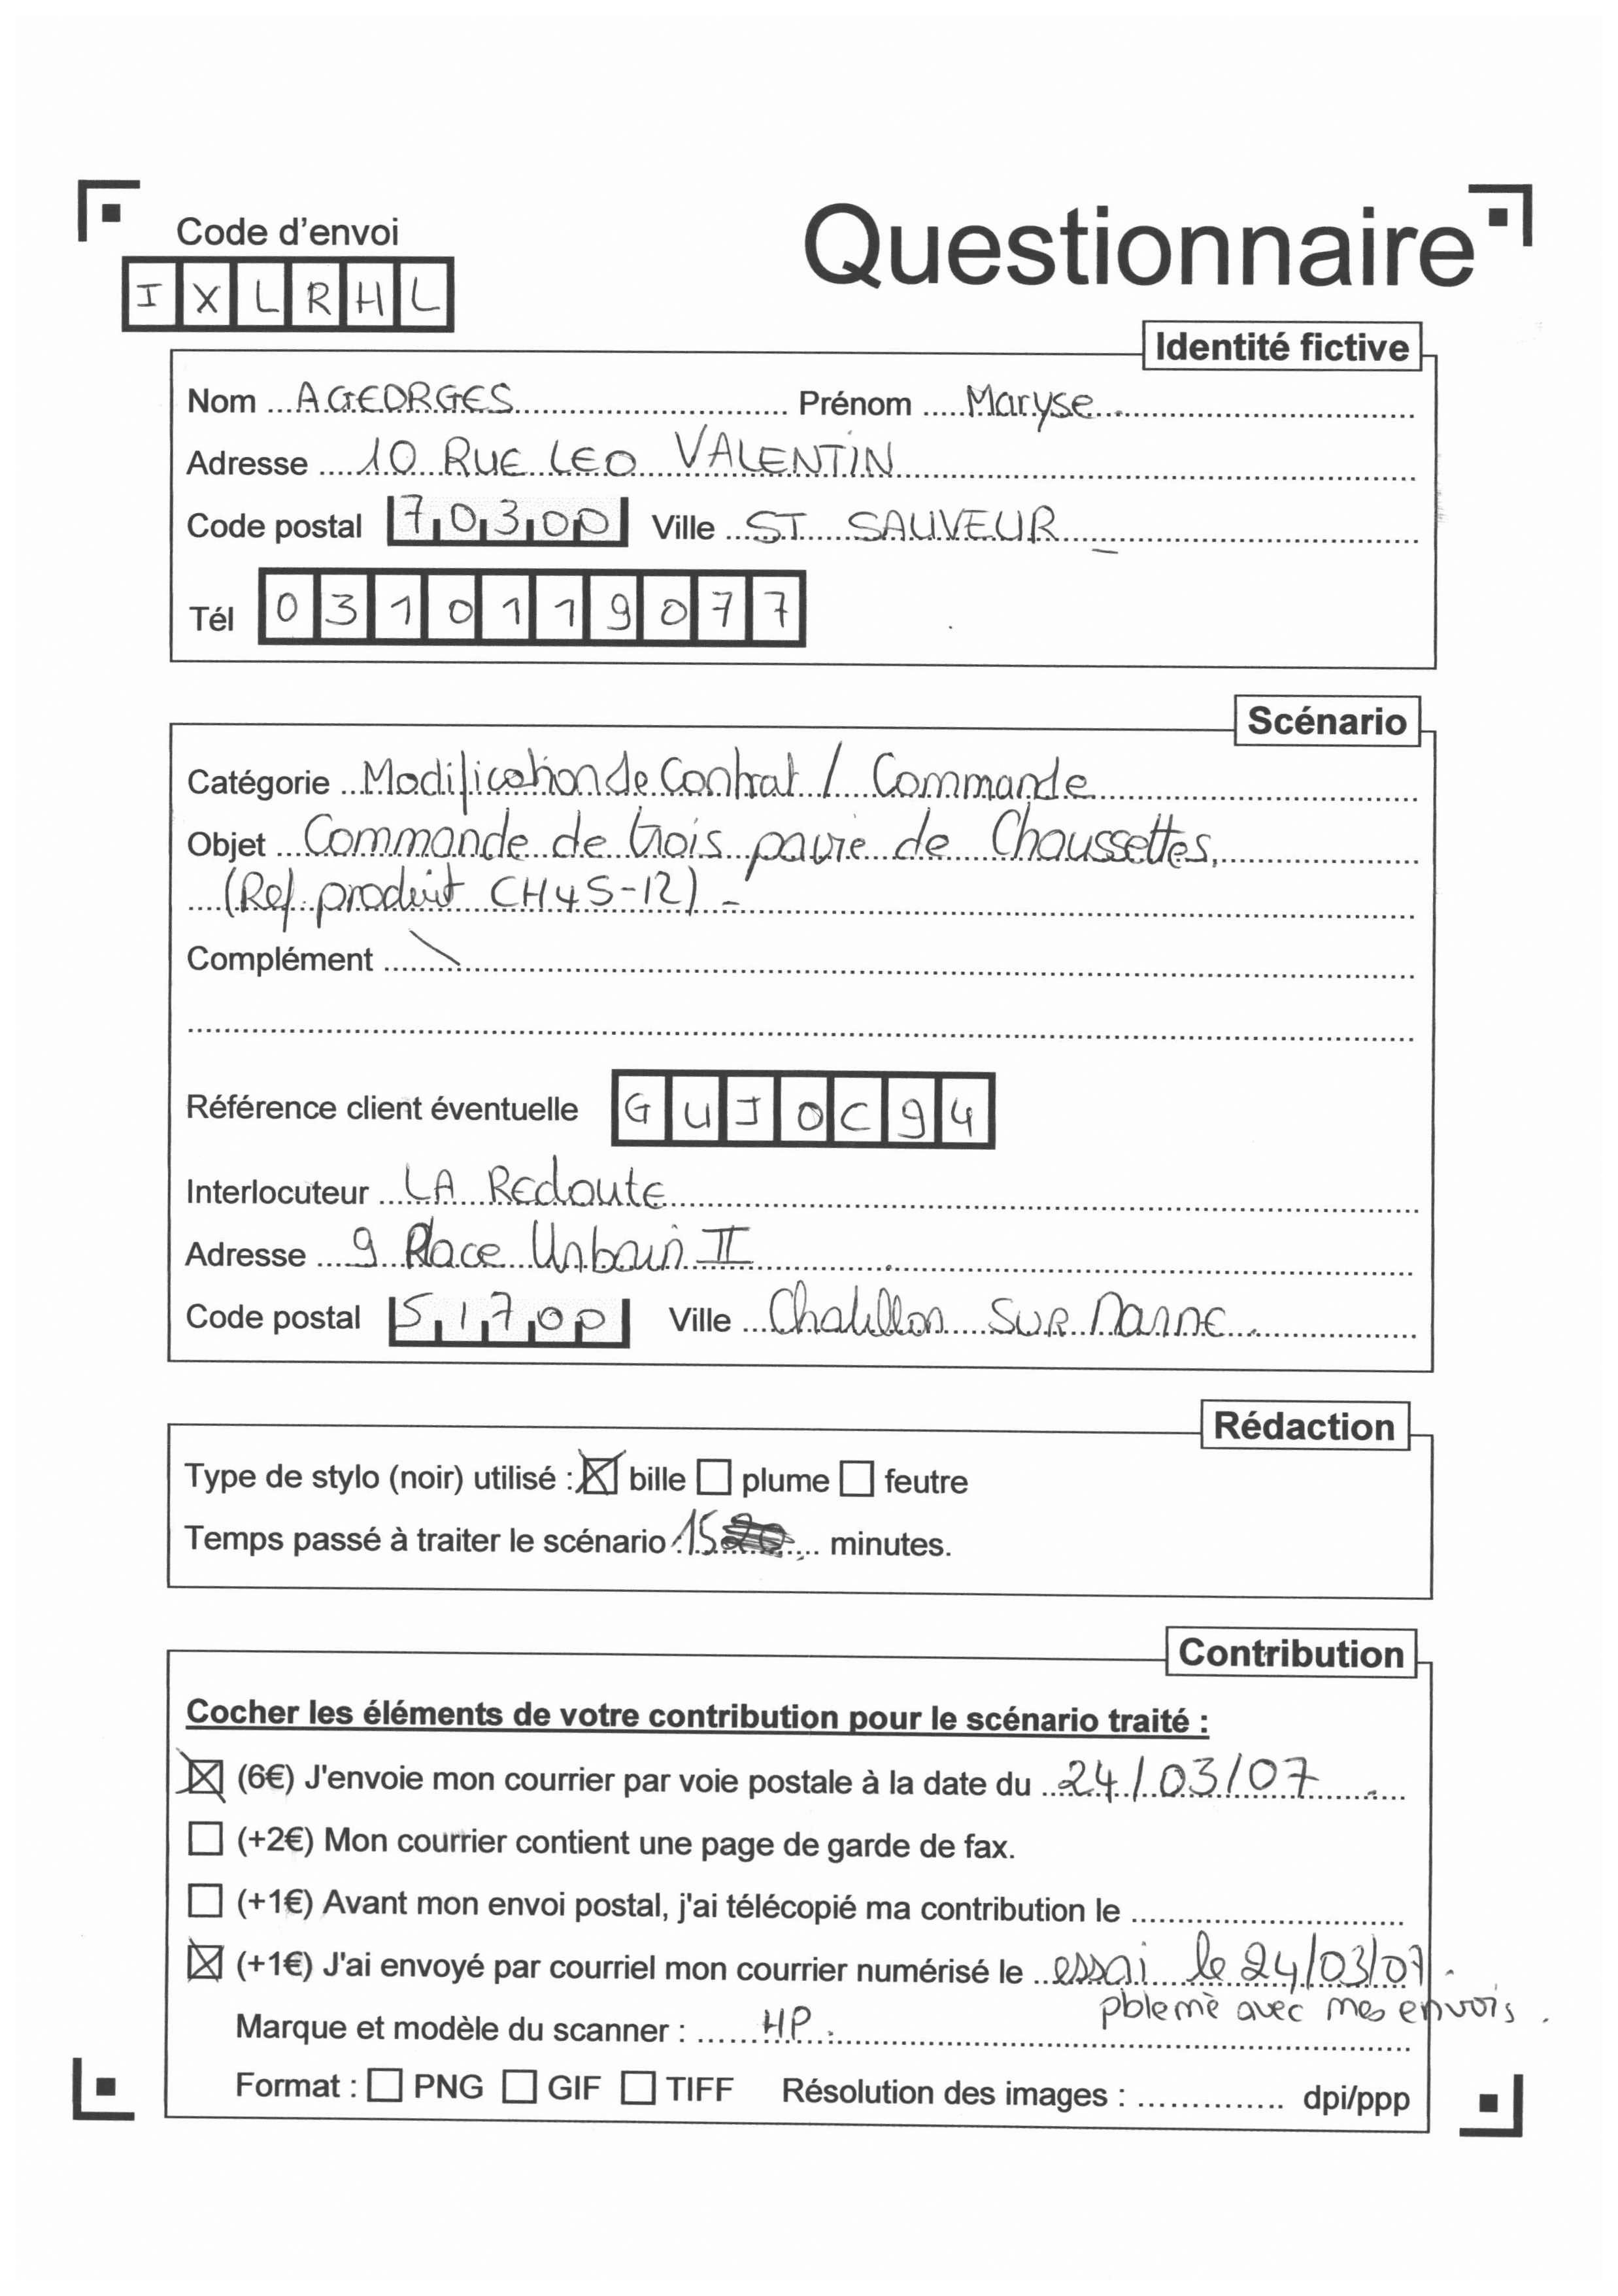 Code d'envoi
IXLRHL
Questionnaire
Identité fictive
Nom AGEORGES Prénom Maryse
Adresse 10 RUE LEO VALENTIN
Code postal 70300 Ville ST SAUVEUR
Tél 0310119077
Scénario
Catégorie Modification de Contrat / Commande
Objet Commande de trois pavie de Chaussettes.
(Ref. produit CH45-12) -
Complément
Référence client éventuelle GUJOC94
Interlocuteur LA REdoutE
Adresse 9 Place Urbain II
Code postal 51700 Ville Chatillon SUR Marne.
Rédaction
Type de stylo (noir) utilisé : ☒ bille ☐ plume ☐ feutre
Temps passé à traiter le scénario 15 minutes.
Contribution
Cocher les éléments de votre contribution pour le scénario traité :
☒ (6€) J'envoie mon courrier par voie postale à la date du 24/03/07.
☐ (+2€) Mon courrier contient une page de garde de fax.
☐ (+1€) Avant mon envoi postal, j'ai télécopié ma contribution le
☒ (+1€) J'ai envoyé par courriel mon courrier numérisé le essai le 24/03/07.
pbleme avec mes envois.
Marque et modèle du scanner : HP.
Format : ☐ PNG ☐ GIF ☐ TIFF Résolution des images : dpi/ppp